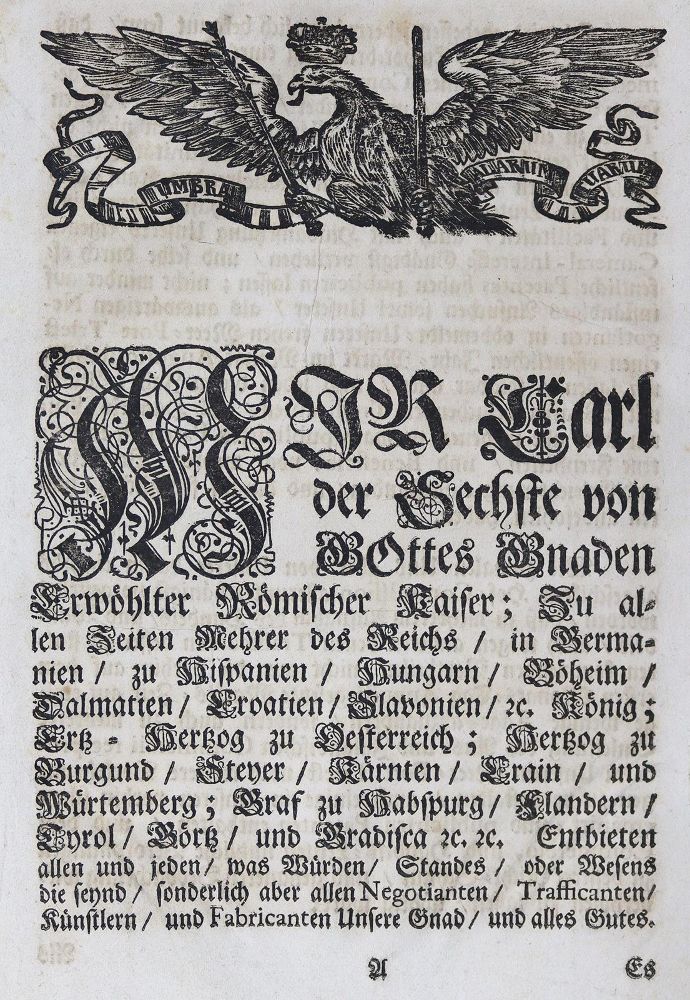 UMBRA ALARUM TUARUM
WIR Carl
der Sechste von
GOttes Gnaden
Erwöhlter Römischer Kaiser; Zu al-
len Zeiten Mehrer des Reichs / in Germa-
nien / zu Hispanien / Hungarn / Böheim /
Dalmatien / Croatien / Slavonien / ꝛc. König;
Ertz-Hertzog zu Oesterreich; Hertzog zu
Burgund / Steyer / Kärnten / Crain / und
Würtemberg; Graf zu Habspurg / Flandern /
Tyrol / Görtz / und Gradisca ꝛc. ꝛc. Entbieten
allen und jeden / was Würden / Standes / oder Wesens
die seynd / sonderlich aber allen Negotianten / Trafficanten /
Künstlern / und Fabricanten Unsere Gnad / und alles Gutes.
A Es